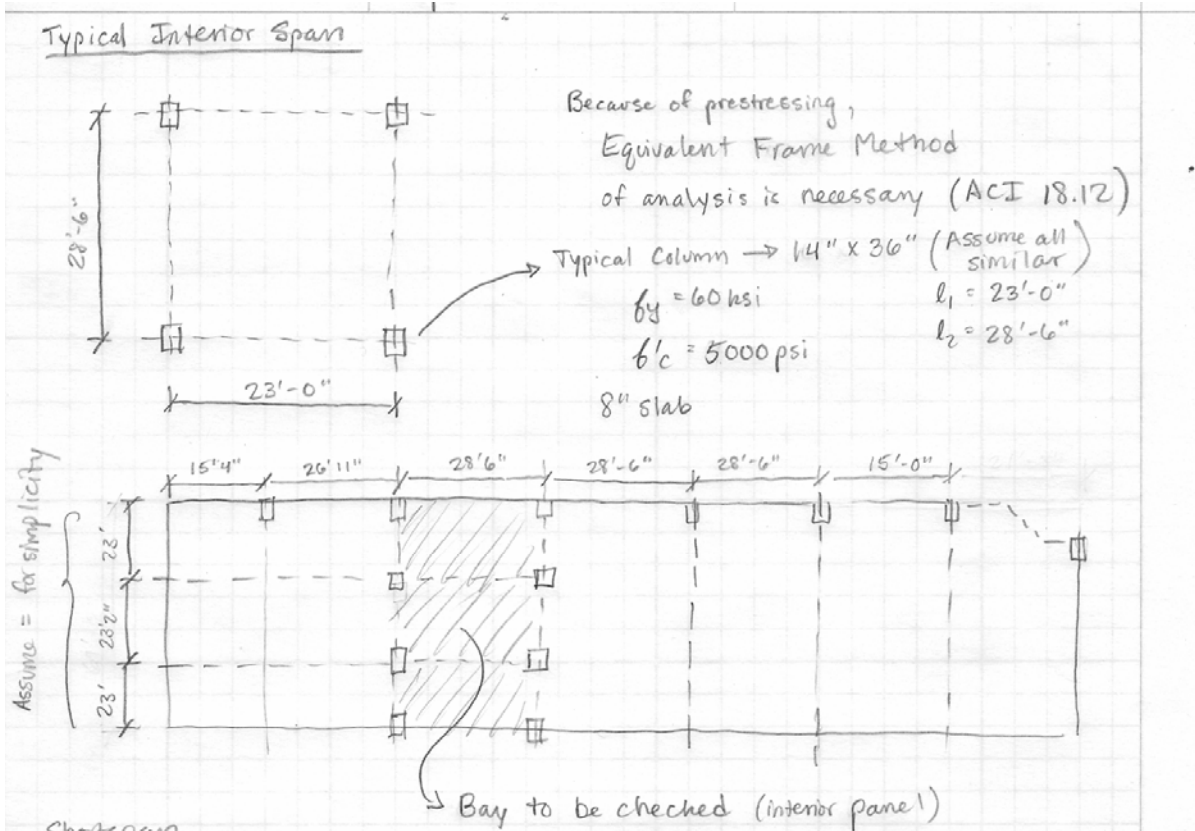 Typical Interior Span
Because of prestressing,
Equivalent Frame Method
of analysis is necessary (ACI 18.12)
28'-6"
Typical Column → 14" x 36" (Assume all similar)
fy = 60 ksi
l1 = 23'-0"
f'c = 5000 psi
l2 = 28'-6"
23'-0"
8" slab
15'4" 26'11" 28'6" 28'-6" 28'-6" 15'-0"
Assume = for simplicity
23'
23'2"
23'
Bay to be checked (interior panel)